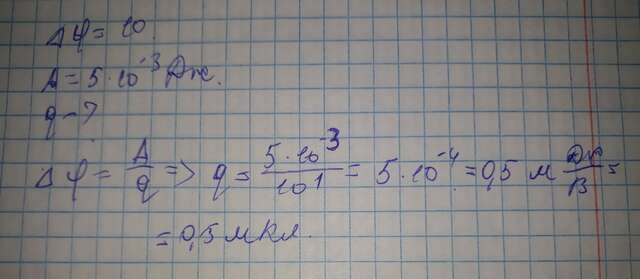 Δφ = 10.
A = 5·10⁻³ Дж.
q - ?
Δφ = A/q => q = 5·10⁻³/10¹ = 5·10⁻⁴ = 0,5 м Дж/В =
= 0,5 мкл.